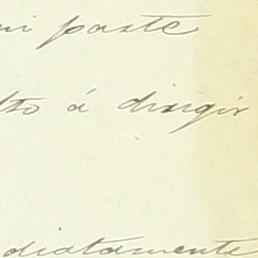 mi parte
lto á dirigir
diatamente